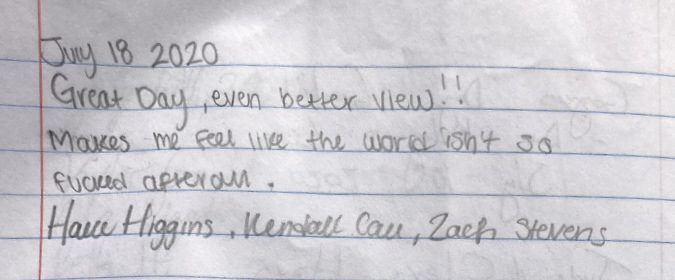 July 18 2020
Great Day, even better view!!
Makes me feel like the world isn't so
fucked afterall.
Higgins, Kendall Zach Stevens